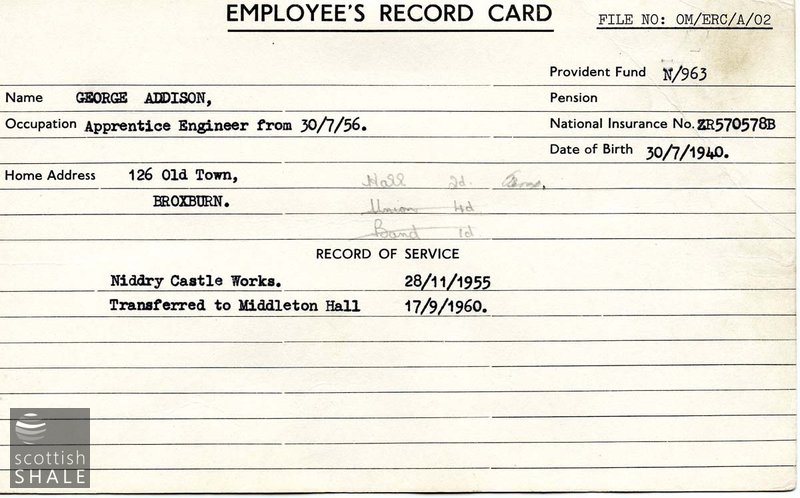 EMPLOYEE'S RECORD CARD
FILE NO: OM/ERC/A/02
Provident Fund N/963
Name GEORGE ADDISON,
Pension
Occupation Apprentice Engineer from 30/7/56.
National Insurance No. ZR570578B
Date of Birth 30/7/1940.
Home Address 126 Old Town,
BROXBURN.
Hall 2d.
Union 4d
Band 1d
RECORD OF SERVICE
Niddry Castle Works. 28/11/1955
Transferred to Middleton Hall 17/9/1960.
scottish
SHALE